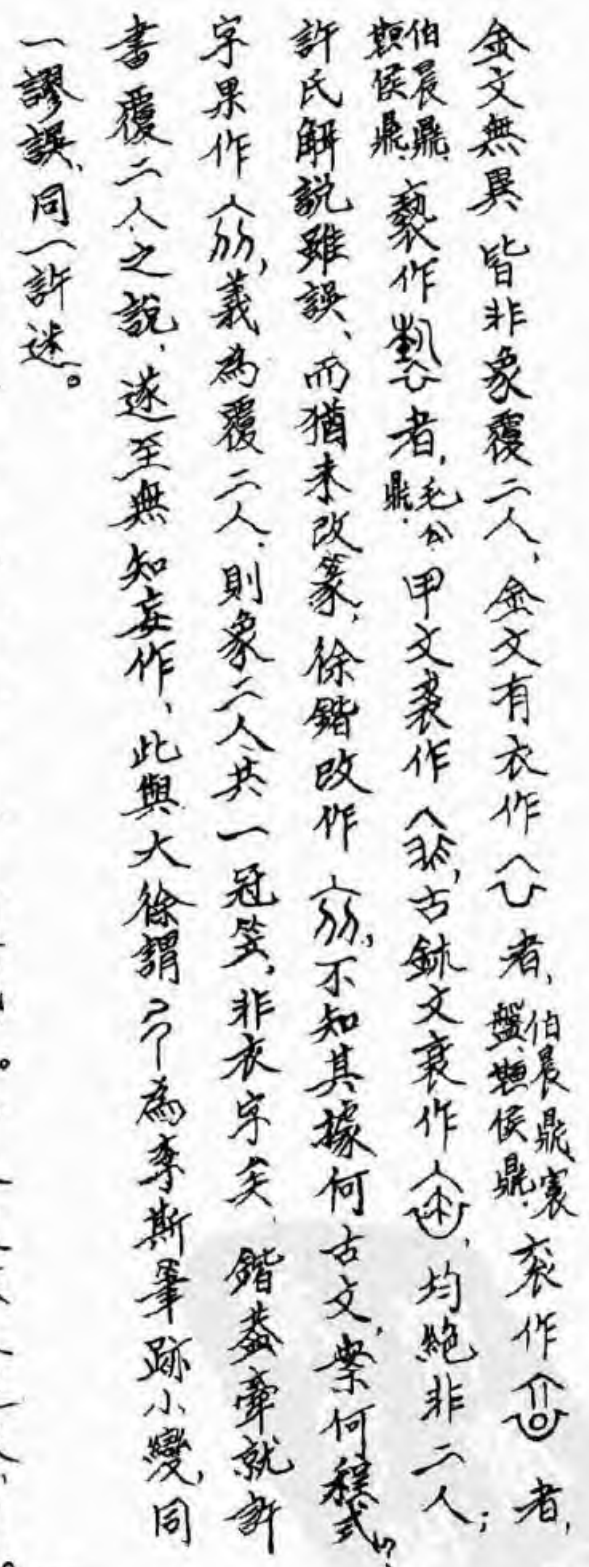 金文無異皆非象覆二人、金文有衣作者，伯晨鼎寰盤䞣侯鼎.袞作者，
伯晨鼎.䞣侯鼎.褻作者，毛公鼎.甲文裘作，古鉥文衰作，均絕非二人；
許氏解說雖誤、而猶未改篆，徐鍇改作，不知其據何古文，案何程式，
字果作，義為覆二人.則象二人共一冠笠，非衣字矣.鍇蓋牽就許
書覆二人之說，遂至無知妄作、此與大徐謂為李斯筆跡小變，同
一謬誤、同一許迷。